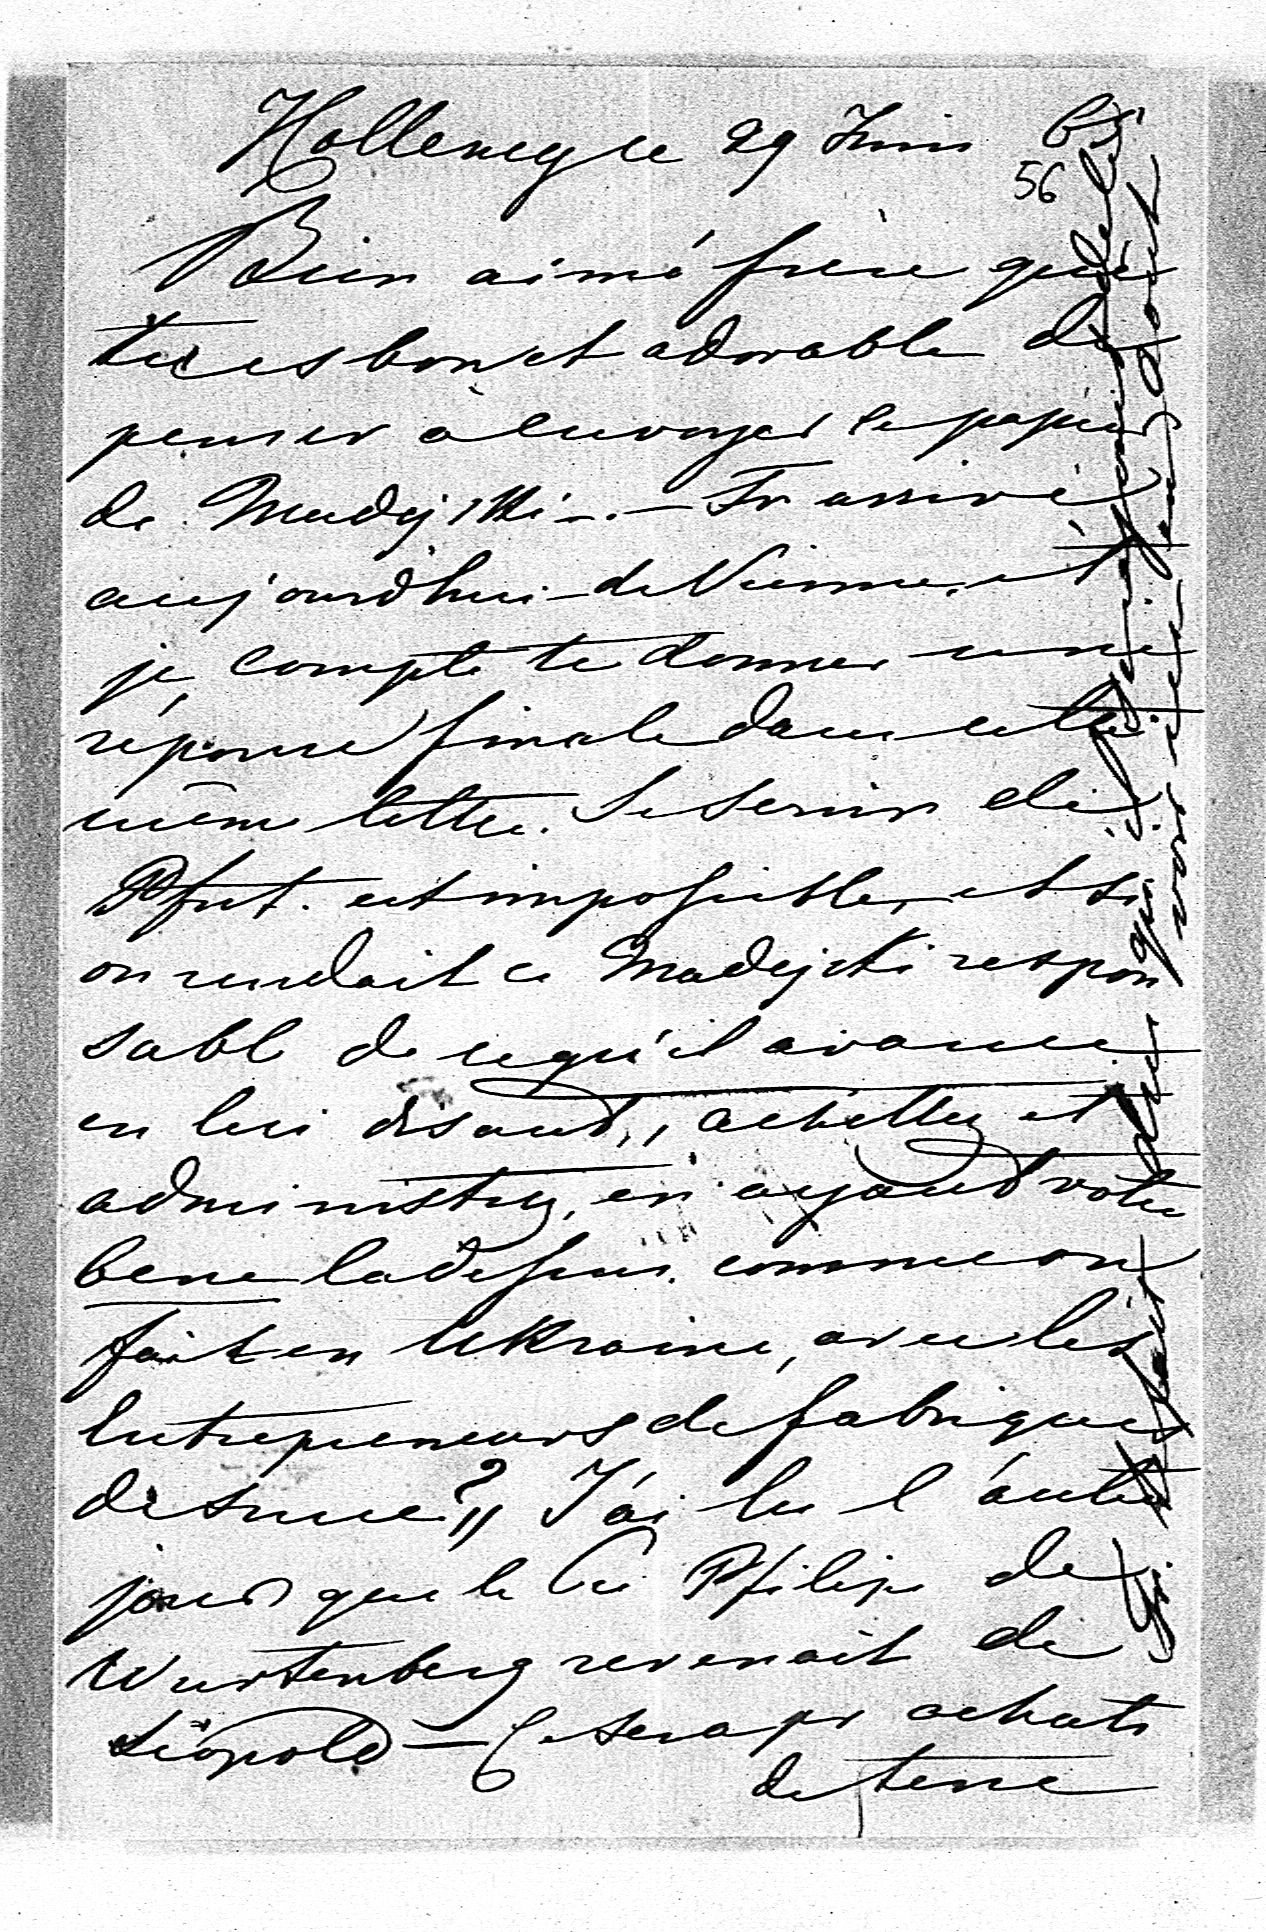 Hollenegg le 29 Juin 65
56
Bien aimé frère que
tu es bon et adorable de
penser à envoyer le papier
de Madejski -.- Fr arrive
aujourdhui de Vienne, et
je compte te donner une
réponse finale dans cette
même lettre. Le serin de
est impossible, et si
on rendait ce Madejski respon
sable de ce qu'il avance
en lui disant ,, achettez et
administrez, en ayant votre
bene ladessus. comme on
fait en Ukraine, avec les
Entrepreneurs de fabriques
de sucre? ,, J'ai lu l'autre
jour que le Cu Philipe de
Wurtenberg revenait de
Léopold — Ce sera pr achats
de terre
voir ici en Août